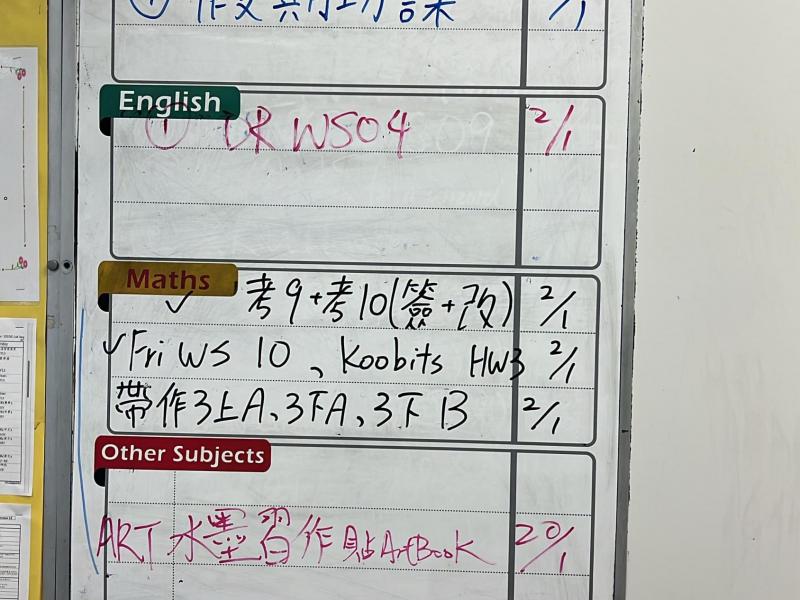 ① 作文 功課 /1
English
① UR WS04 2/1
Maths
✓ 考9+考10(簽+改) 2/1
✓Fri WS 10、Koobits HW3 2/1
帶作3上A、3下A、3下B 2/1
Other Subjects
ART 水墨習作貼ArtBook 20/1